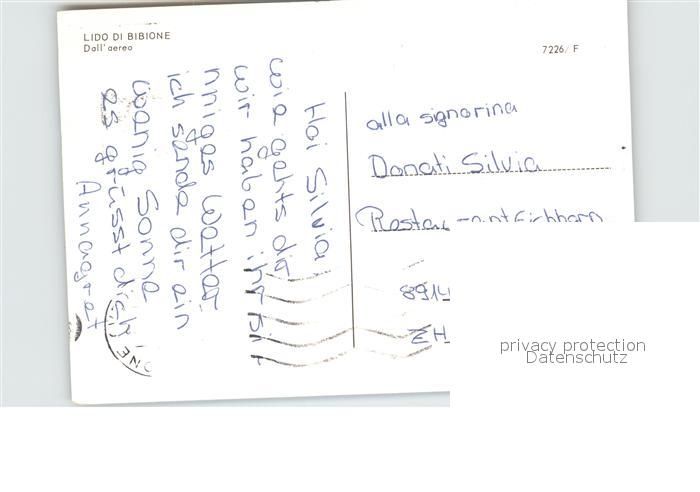 LIDO DI BIBIONE
Dall'aereo
7226/F
Hoi Silvia
wie gehts dir
wir haben ihr
nniges Wetter
ich sende dir ein
wenig Sonne
es grüsst dich
alla signorina
Donati Silvia
8914
ZH
privacy protection
Datenschutz